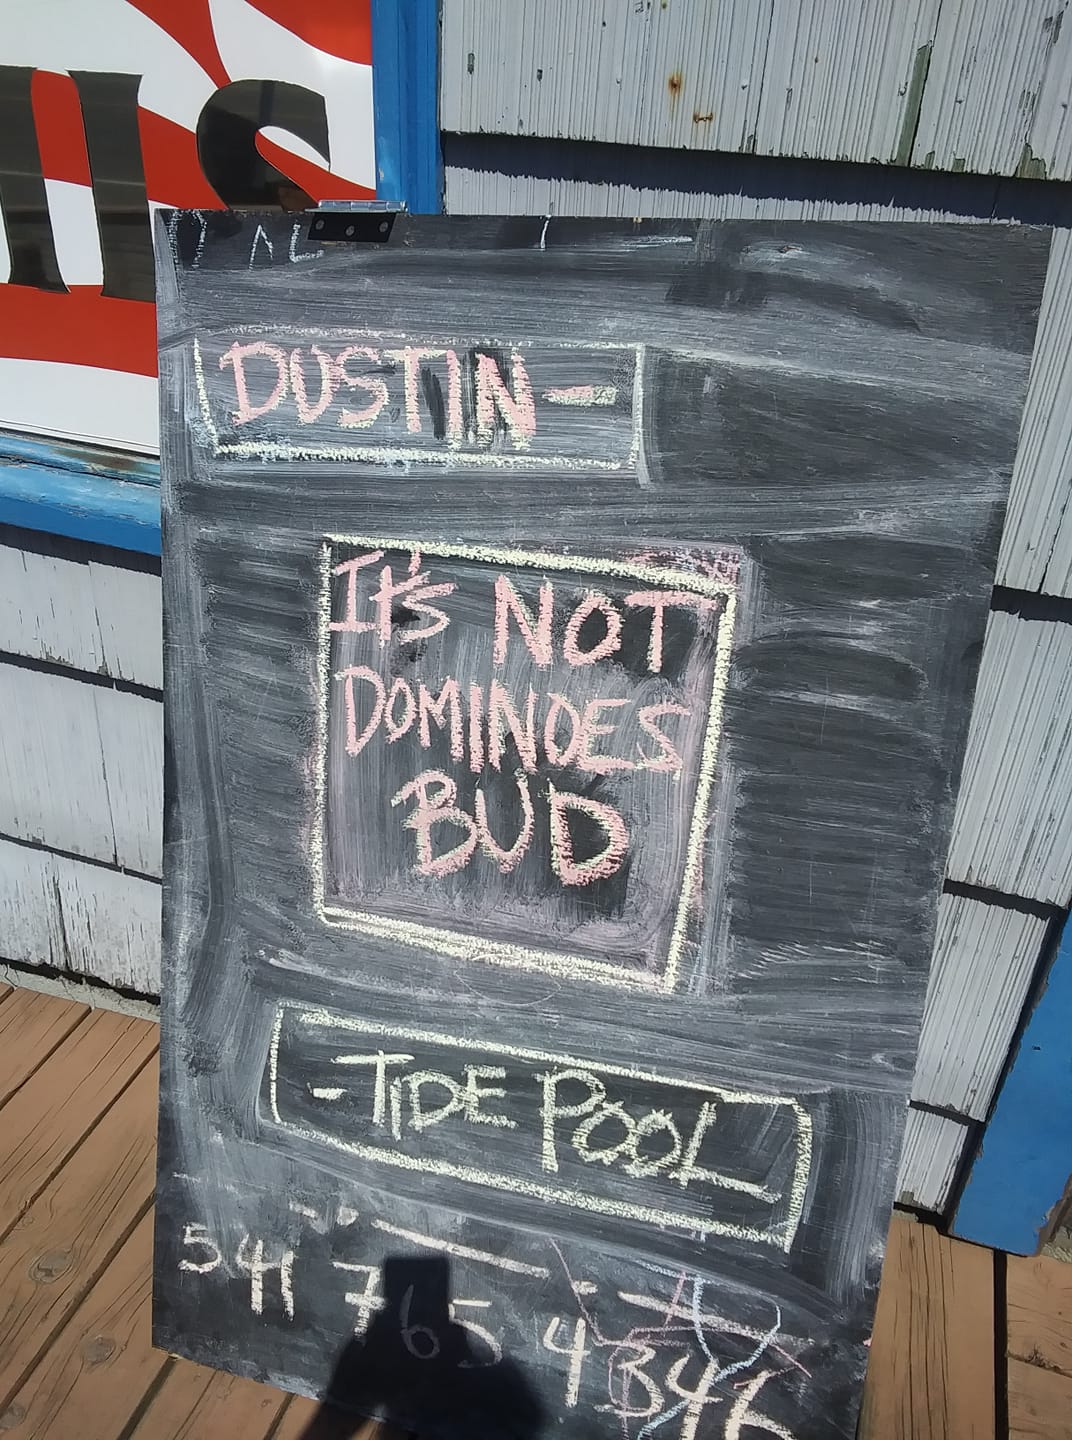 us
DUSTIN-
It's NOT
DOMINOES
BUD
-TIDE POOL
541 765 4